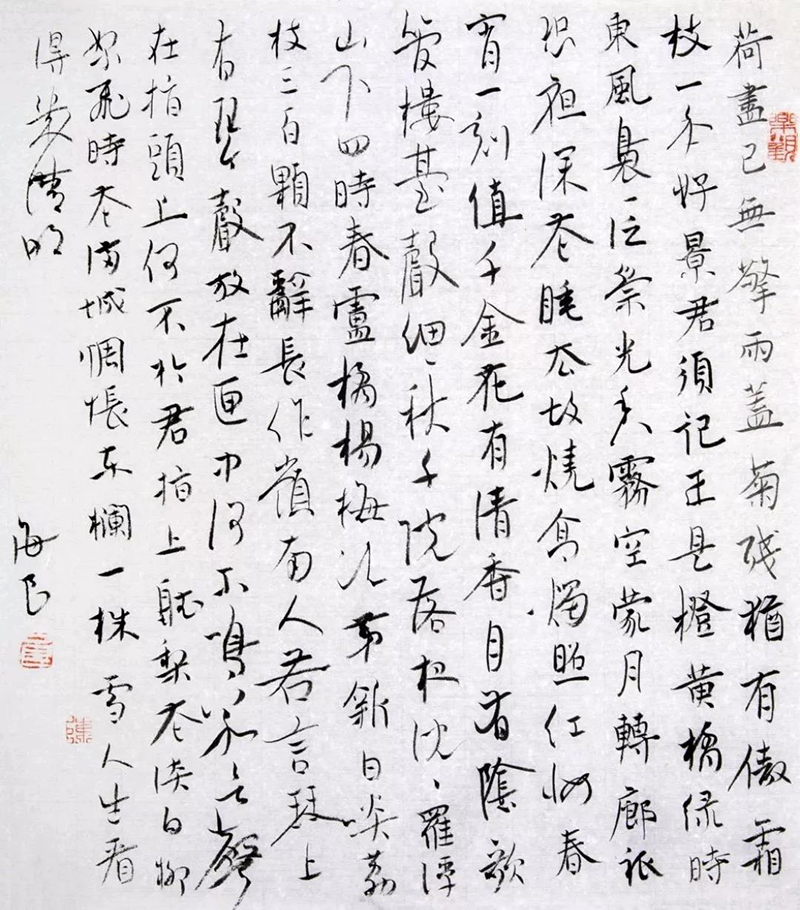 荷盡已無擎雨蓋菊殘猶有傲霜
枝一年好景君須記正是橙黃橘綠時
東風裊〻泛崇光香霧空蒙月轉廊祇
恐夜深花睡去故燒高燭照紅妝春
宵一刻值千金花有清香月有陰歌
管樓臺聲細〻秋千院落夜沈〻羅浮
山下四時春盧橘楊梅次第新日啖荔
枝三百顆不辭長作嶺南人若言琴上
有琴聲放在匣中何不鳴若言聲
在指頭上何不於君指上聽梨花淡白柳
絮飛時花滿城惆悵東欄一株雪人生看
得幾清明
海良
樂觀
陳